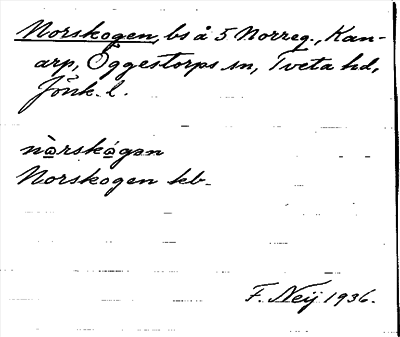 Norskogen, bs å 5 Norreg., Kan-
arp, Öggestorps sn, Tveta hd,
Jönk. l.
nòrskógən
Norskogen kb.
F. Neij 1936.